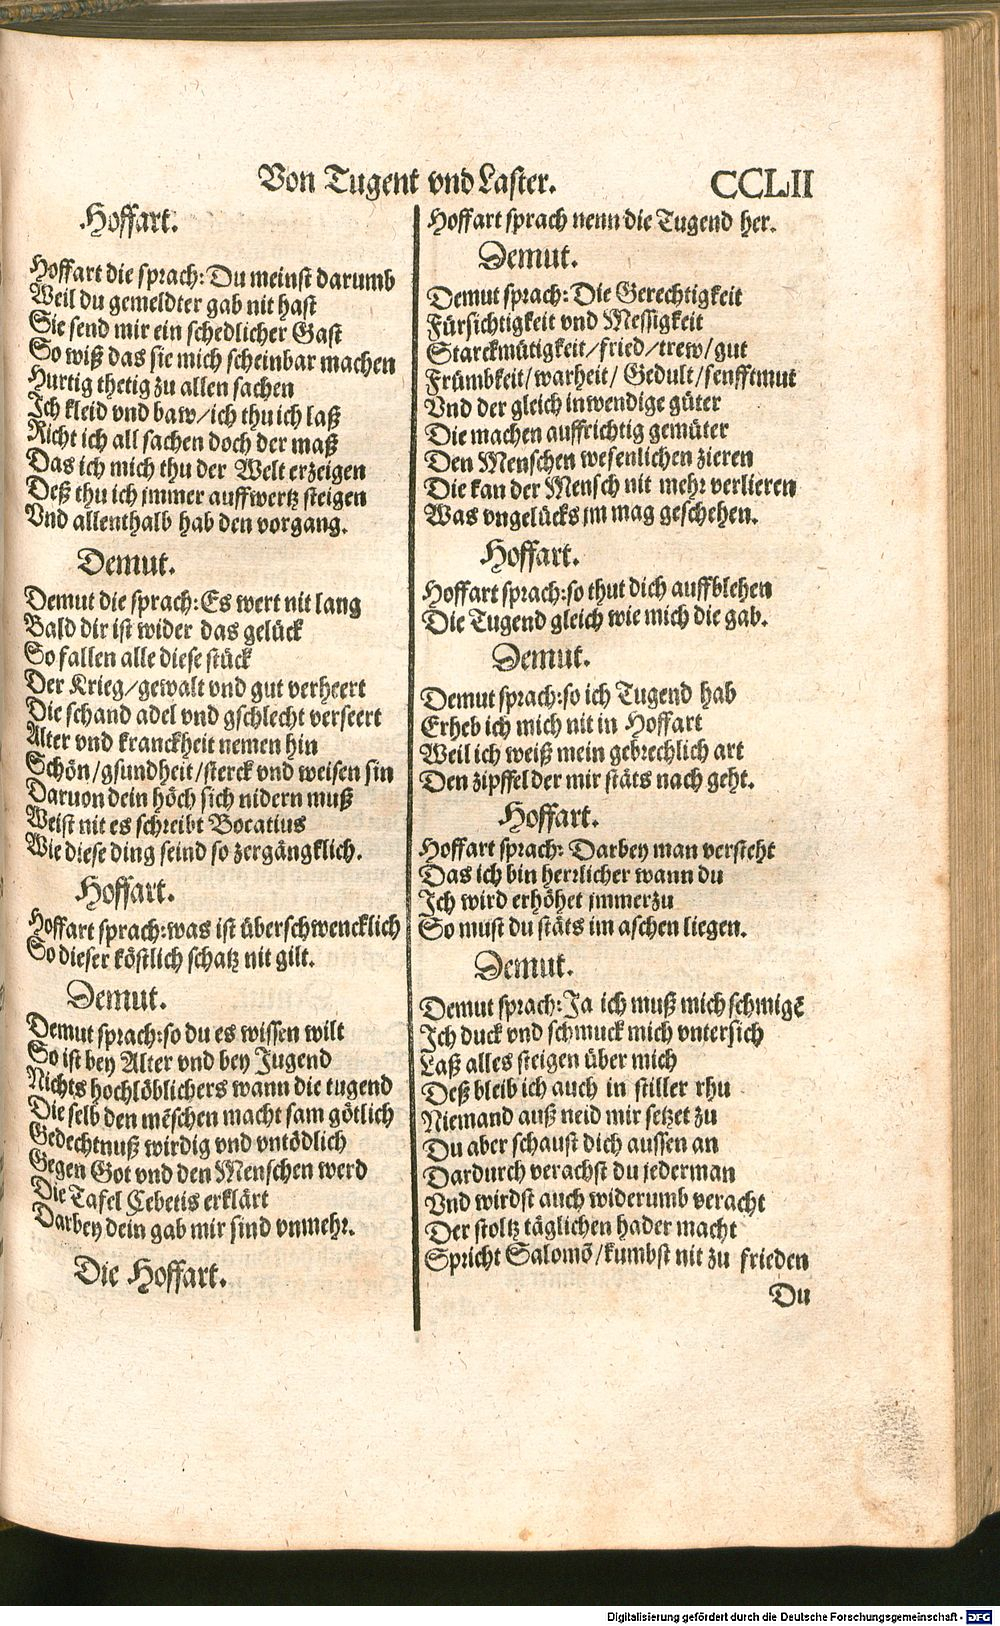 Von Tugent vnd Laster. CCLII
Hoffart.
Hoffart die sprach: Du meinst darumb
Weil du gemeldter gab nit hast
Sie send mir ein schedlicher Gast
So wiß das sie mich scheinbar machen
Hurtig thetig zu allen sachen
Ich kleid vnd baw/ich thu ich laß
Richt ich all sachen doch der maß
Das ich mich thu der Welt erzeigen
Deß thu ich jmmer auffwertz steigen
Vnd allenthalb hab den vorgang.
Demut.
Demut die sprach: Es wert nit lang
Bald dir ist wider das gelück
So fallen alle diese stück
Der Krieg/gewalt vnd gut verheert
Die schand adel vnd gschlecht verseert
Alter vnd kranckheit nemen hin
Schön/gsundheit/sterck vnd weisen sin
Daruon dein höch sich nidern muß
Weist nit es schreibt Bocatius
Wie diese ding seind so zergängklich.
Hoffart.
Hoffart sprach: was ist überschwencklich
So dieser köstlich schatz nit gilt.
Demut.
Demut sprach: so du es wissen wilt
So ist bey Alter vnd bey Jugend
Nichts hochlöblichers wann die tugend
Die selb den mēschen macht sam götlich
Gedechtnuß wirdig vnd vntödlich
Gegen Got vnd den Menschen werd
Die Tafel Cebetis erklärt
Darbey dein gab mir sind vnmehr.
Die Hoffart.
Hoffart sprach nenn die Tugend her.
Demut.
Demut sprach: Die Gerechtigkeit
Fürsichtigkeit vnd Messigkeit
Starckmütigkeit/fried/trew/gut
Frümbkeit/warheit/ Gedult/senfftmut
Vnd der gleich inwendige güter
Die machen auffrichtig gemüter
Den Menschen wesenlichen zieren
Die kan der Mensch nit mehr verlieren
Was vngelücks jm mag geschehen.
Hoffart.
Hoffart sprach: so thut dich auffblehen
Die Tugend gleich wie mich die gab.
Demut.
Demut sprach: so ich Tugend hab
Erheb ich mich nit in Hoffart
Weil ich weiß mein gebrechlich art
Den zipffel der mir stäts nach geht.
Hoffart.
Hoffart sprach: Darbey man versteht
Das ich bin herrlicher wann du
Ich wird erhöhet jmmerzu
So must du stäts im aschen liegen.
Demut.
Demut sprach: Ja ich muß mich schmigē
Ich duck vnd schmuck mich vntersich
Laß alles steigen über mich
Deß bleib ich auch in stiller rhu
Niemand auß neid mir setzet zu
Du aber schaust dich aussen an
Dardurch verachst du jederman
Vnd wirdst auch widerumb veracht
Der stoltz täglichen hader macht
Spricht Salomō/kumbst nit zu frieden
Du
Digitalisierung gefördert durch die Deutsche Forschungsgemeinschaft - DFG